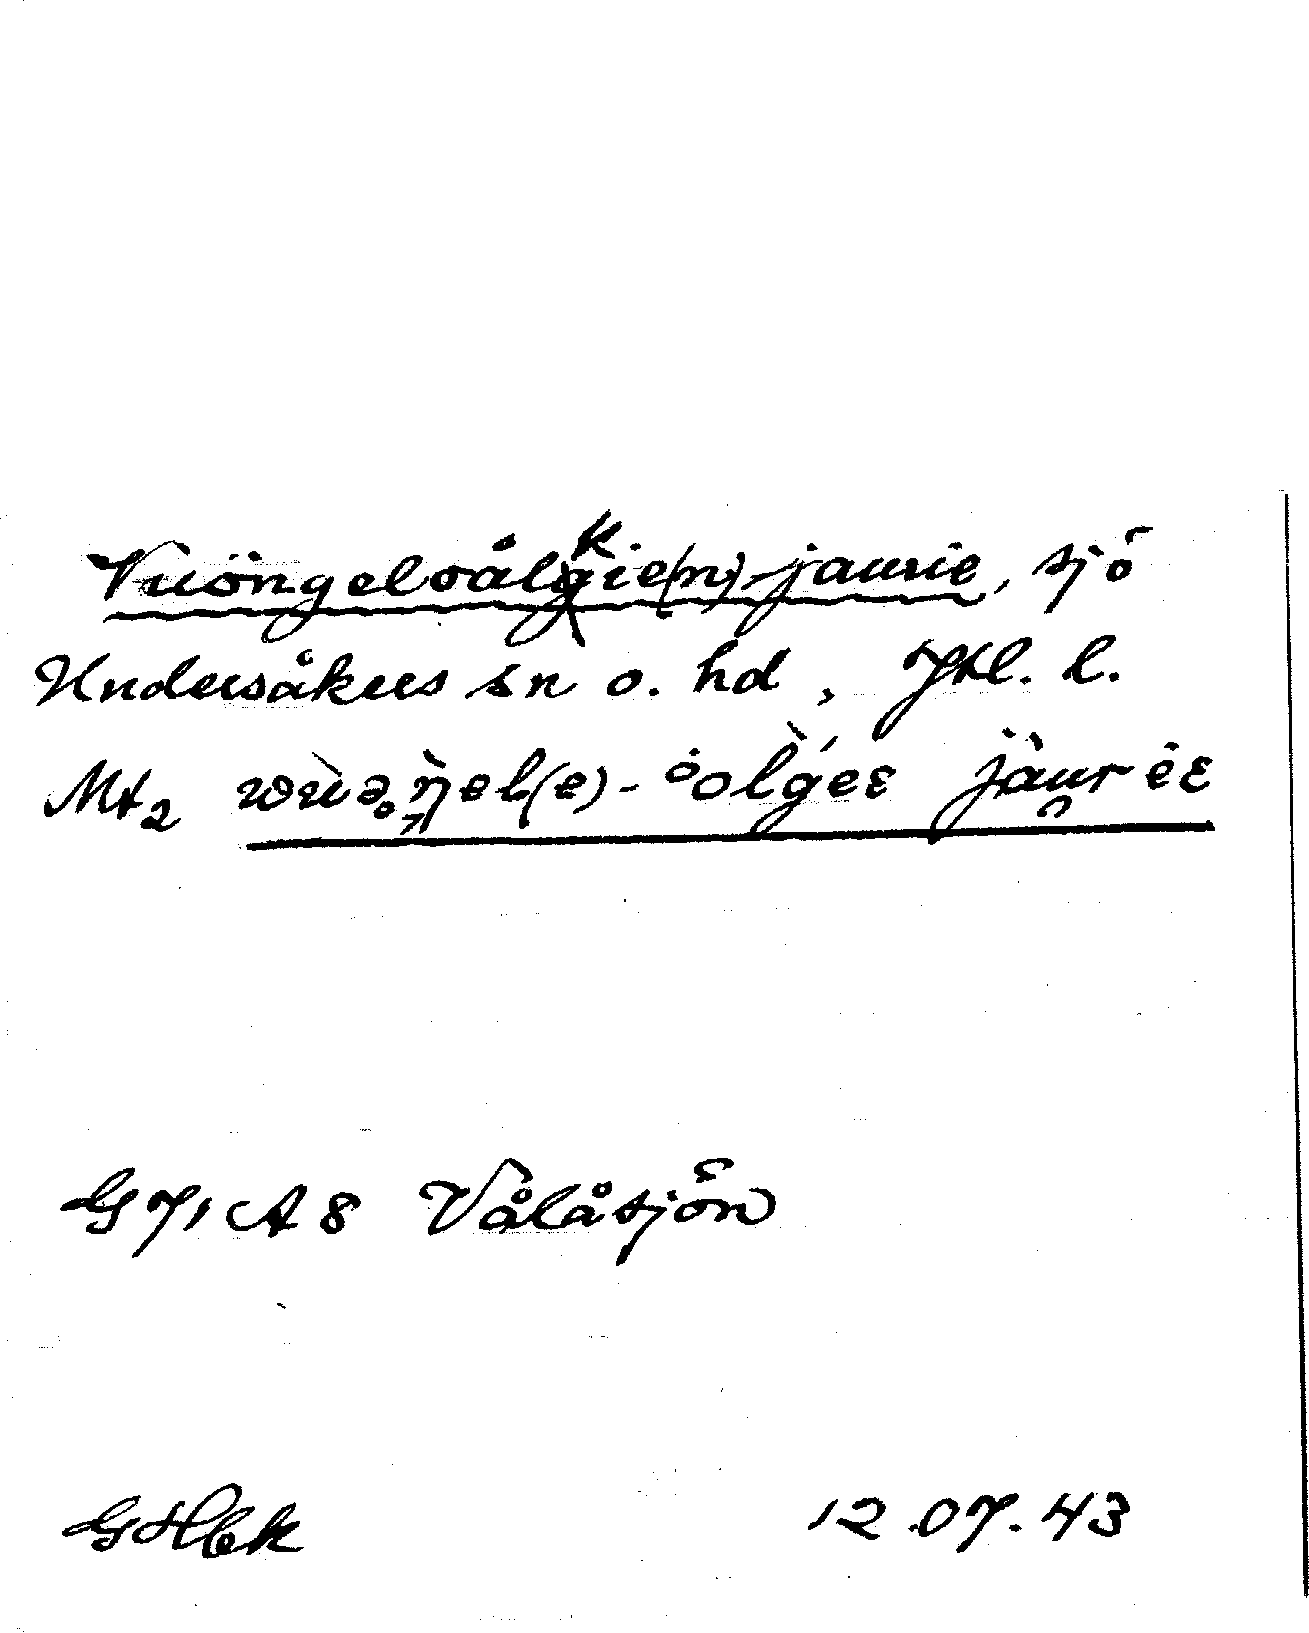 Vuöngeloålkie(n)-jaurie, sjö
Undersåkers sn o. hd, Jtl. l.
Mt2 wùəŋel(e)-olǵeɛ jàuréɛ
G 7, A 8 Vålåsjön
GHbk 12.07.43